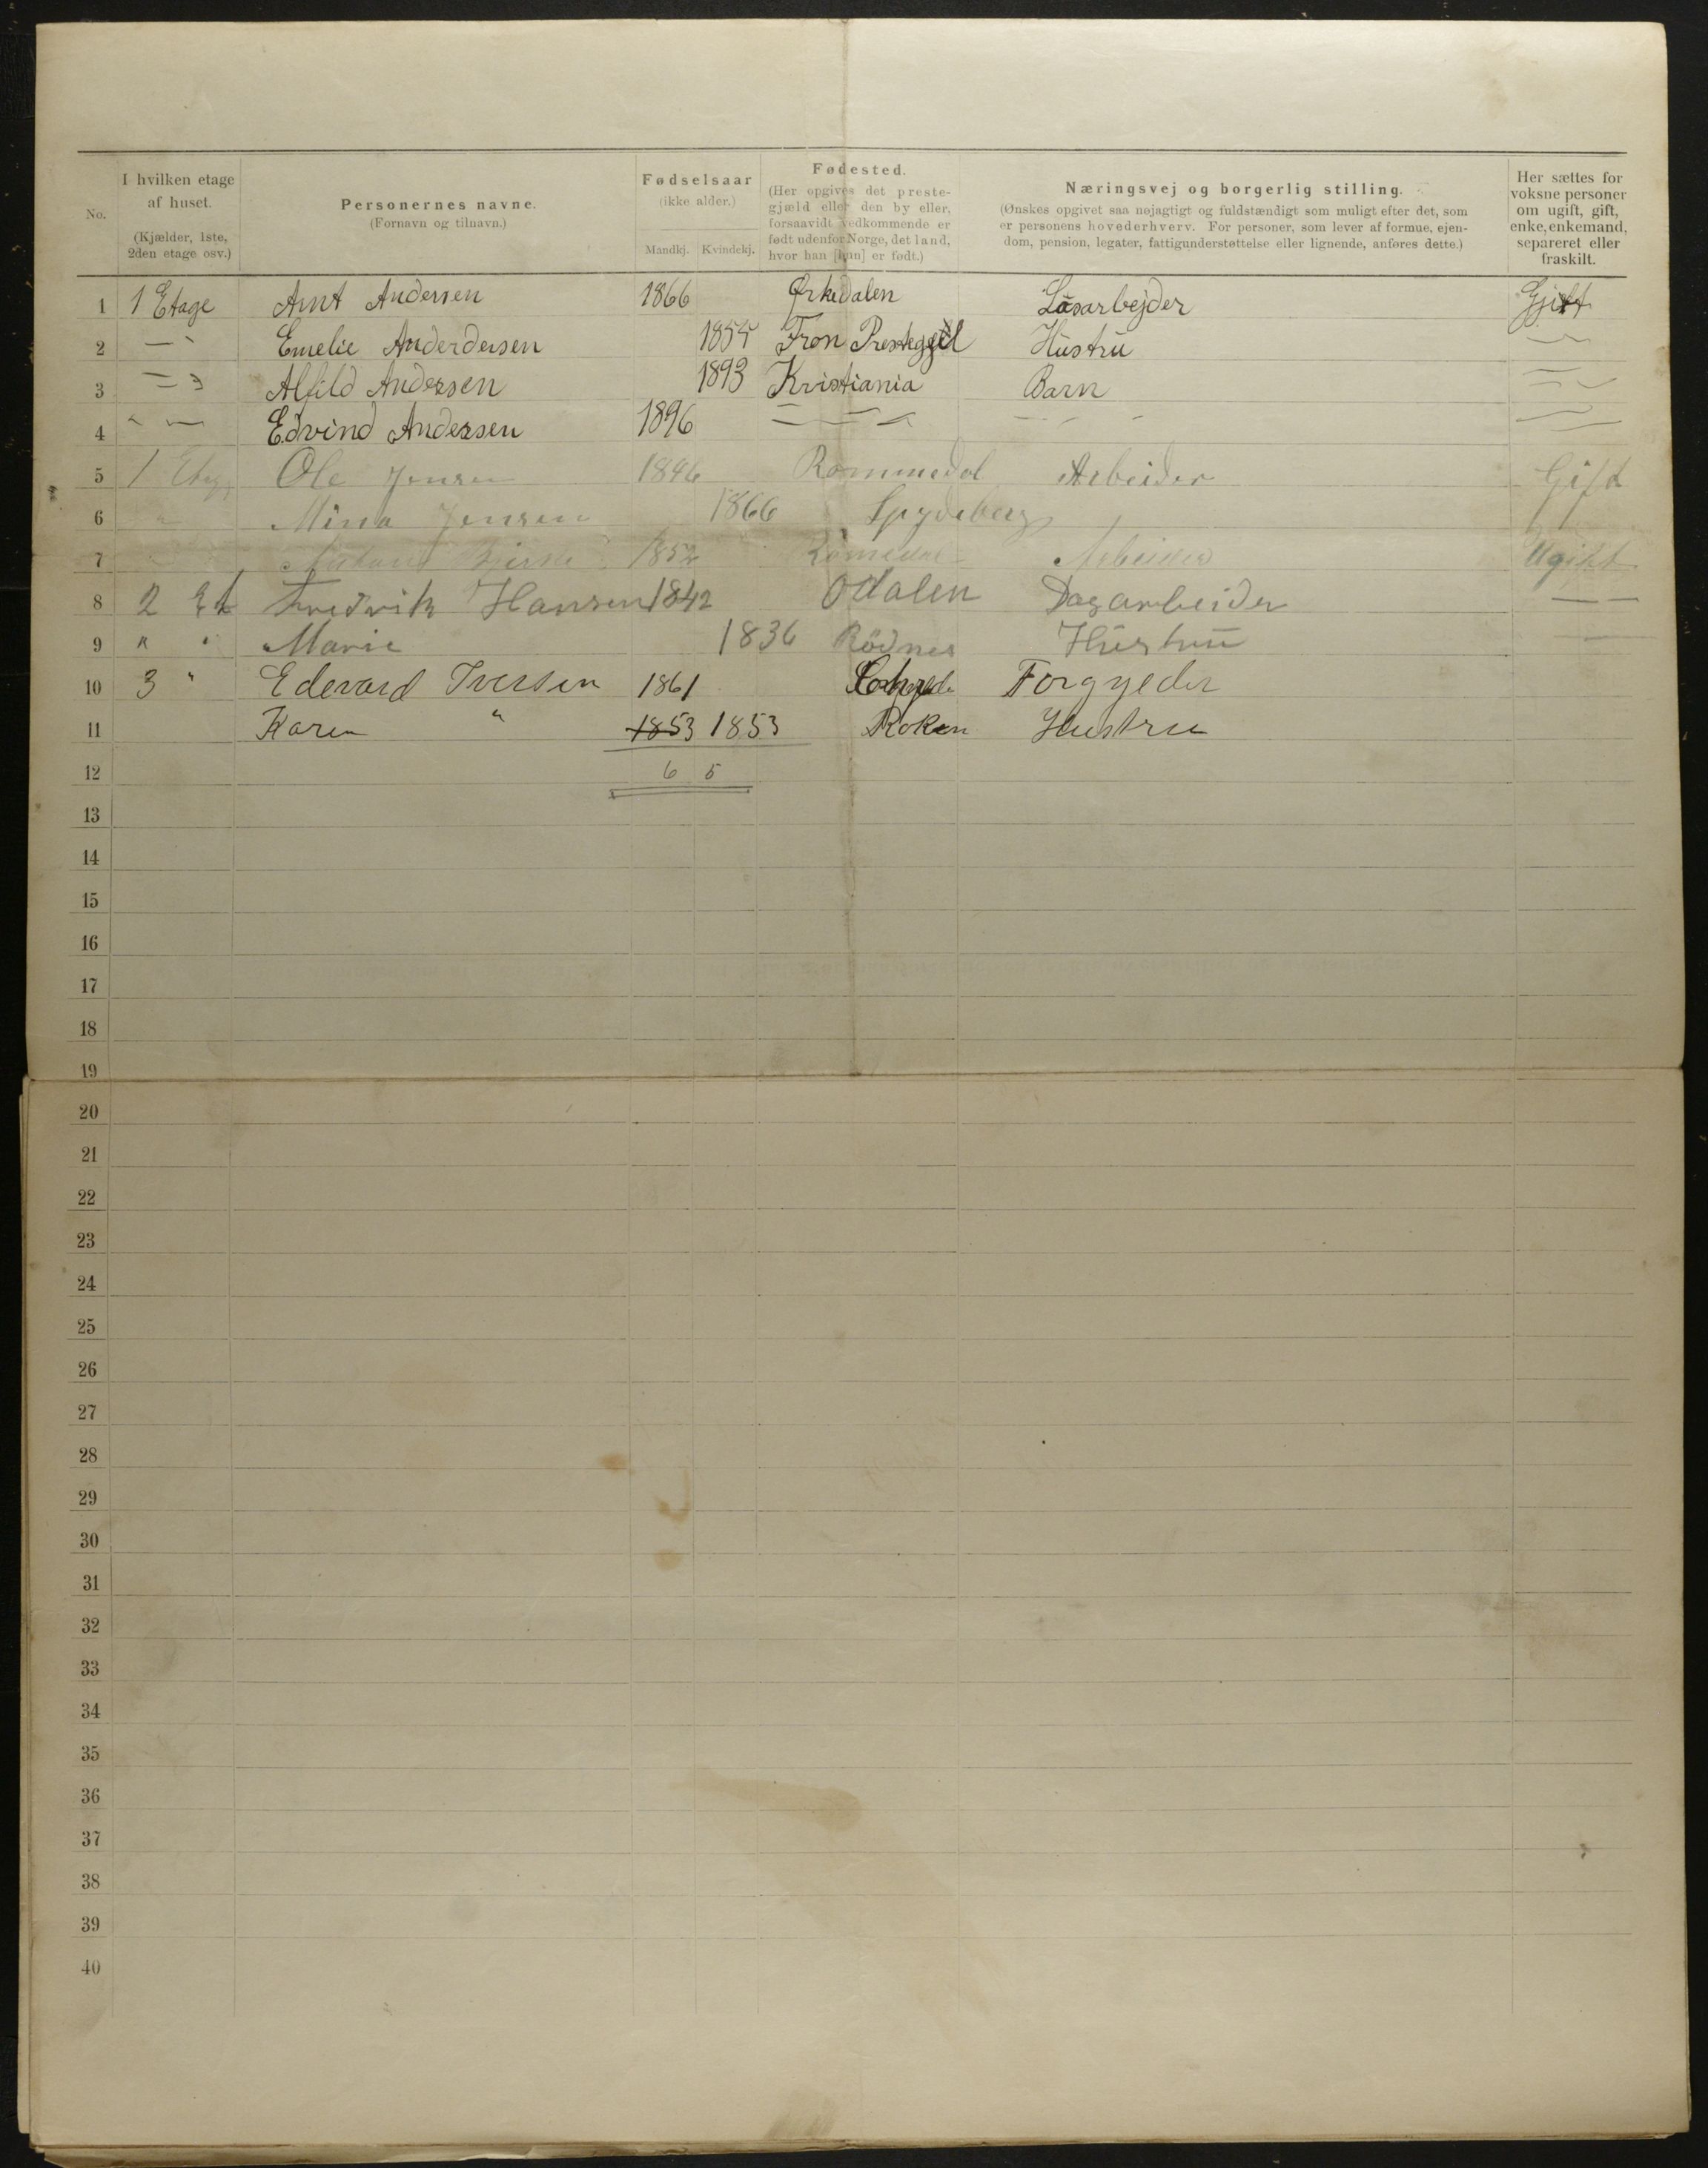 No.
I hvilken etage af huset.
(Kjælder, 1ste, 2den etage osv.)
Personernes navne.
(Fornavn og tilnavn.)
Fødselsaar
(ikke alder.)
Mandkj. Kvindekj.
Fødested.
(Her opgives det prestegjæld eller den by eller, forsaavidt vedkommende er født udenfor Norge, det land, hvor han [hun] er født.)
Næringsvej og borgerlig stilling.
(Ønskes opgivet saa nøjagtigt og fuldstændigt som muligt efter det, som er personens hovederhverv. For personer, som lever af formue, ejendom, pension, legater, fattigunderstøttelse eller lignende, anføres dette.)
Her sættes for voksne personer om ugift, gift, enke, enkemand, separeret eller fraskilt.
1 1 Etage Arnt Andersen 1866 Ørkedalen Løsarbejder Gjift
2 — " Emelie Anderdersen 1854 Fron Hustru —
3 — " Alfild Andersen 1893 Kristiania Barn —
4 " — Edvind Andersen 1896 — — — — — — —
5 1 Etag Ole Jensen 1846 Rommedal Arbeider Gift
6 " Mina Jensen 1866 Spydeberg "
7 " 1852 Romedal Arbeider Ugift
8 2 Et Fredrik Hansen 1842 Odalen Dagarbeider — —
9 " " Marie 1836 Rödnes Hüstrü —
10 3 " Edevard Iversen 1861 Forgyeder
11 Karen " 1853 1853 Roken Hustru
12 6 5
13
14
15
16
17
18
19
20
21
22
23
24
25
26
27
28
29
30
31
32
33
34
35
36
37
38
39
40